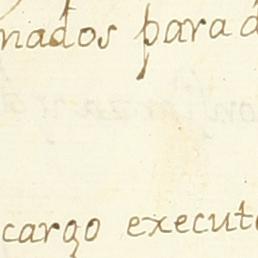 nados para d
cargo execut